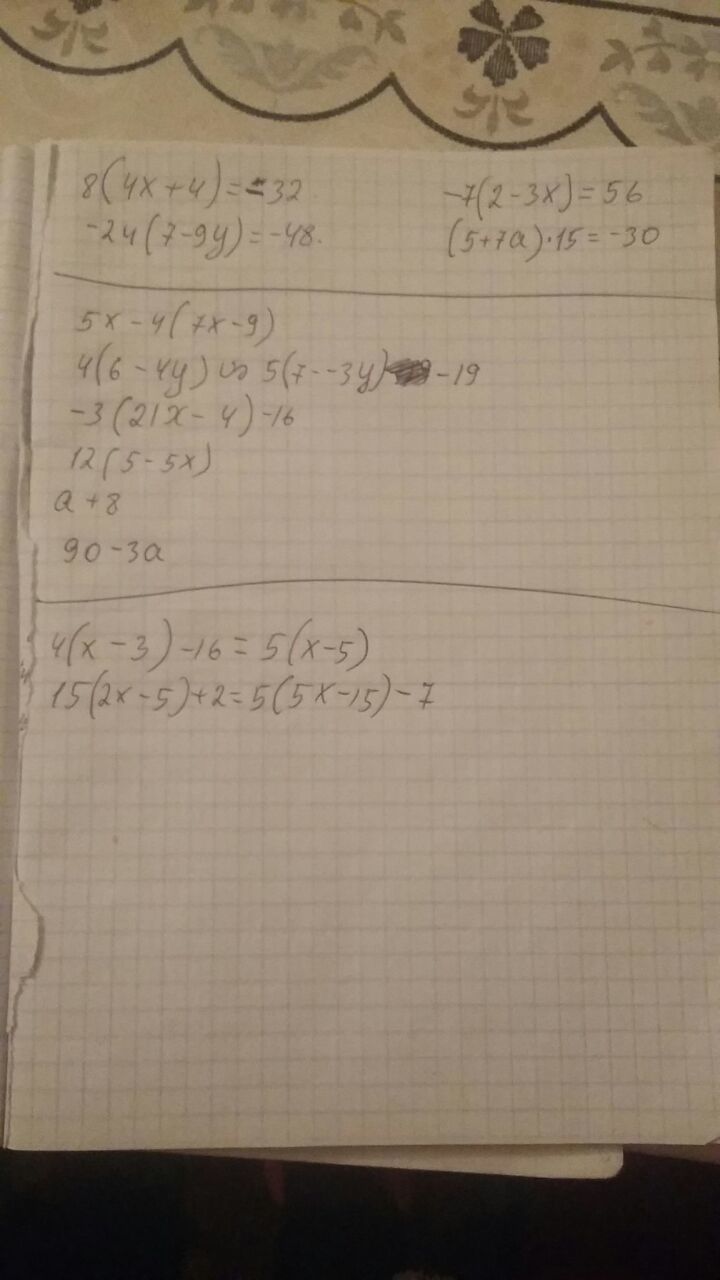 8(4x+4)=-32
-7(2-3x)=56
-24(7-9y)=-48.
(5+7a)·15=-30
5x-4(7x-9)
4(6-4y) 5(7--3y) -19
-3(21x-4)-16
12(5-5x)
a+8
90-3a
4(x-3)-16=5(x-5)
15(2x-5)+2=5(5x-15)-7